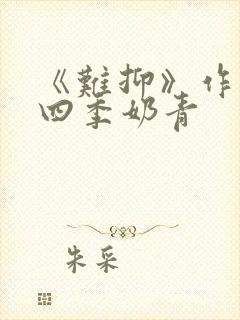 《難抑》作
四季奶青
朱采